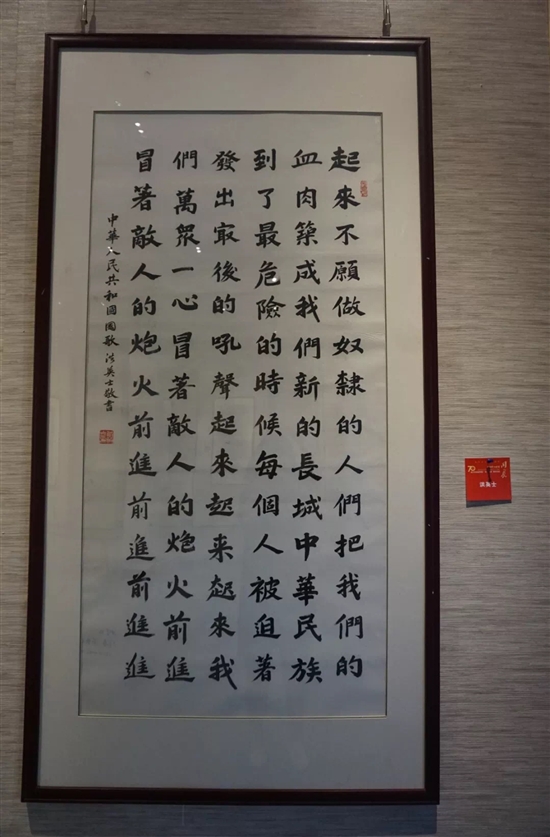 起來不願做奴隸的人們把我們的
血肉築成我們新的長城中華民族
到了最危險的時候每個人被迫著
發出㝡後的吼聲起來起来起來我
們萬眾一心冒著敵人的炮火前進
冒著敵人的炮火前進前進前進進
中華人民共和國國歌 洪英士敬書
洪英士